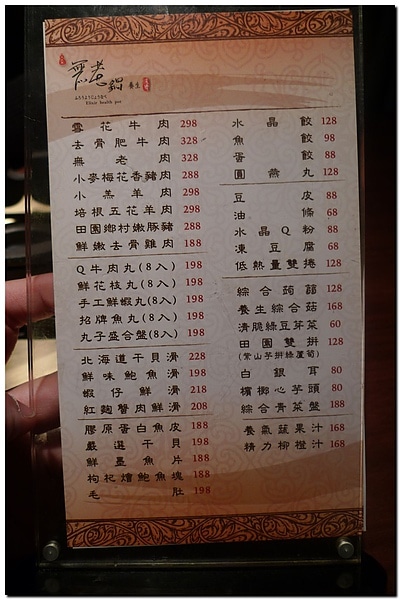 無老鍋 養生
ふろうようじょうなべ
Elixir health pot
雪花牛肉 298
去骨肥牛肉 328
無老肉 328
小麥梅花香豬肉 288
小羔羊肉 298
培根五花羊肉 298
田園鄉村嫩豚豬 288
鮮嫩去骨雞肉 188
Q牛肉丸(8入) 198
鮮花枝丸(8入) 198
手工鮮蝦丸(8入) 198
招牌魚丸(8入) 198
丸子盛合盤(8入) 198
北海道干貝滑 228
鮮味鮑魚滑 198
蝦仔鮮滑 218
紅麴蟹肉鮮滑 208
膠原蛋白魚皮 188
嚴選干貝 198
鮮墨魚片 188
枸杞燴鮑魚塊 188
毛肚 198
水晶餃 128
魚餃 98
蛋餃 88
圓燕丸 128
豆皮 88
油條 68
水晶Q粉 88
凍豆腐 68
低熱量雙捲 128
綜合蒟蒻 128
養生綜合菇 168
清脆綠豆芽菜 60
田園雙拼 128
(紫山芋拼綠蘆筍)
白銀耳 80
檳榔心芋頭 80
綜合青菜盤 188
養氣蔬果汁 168
精力柳橙汁 168